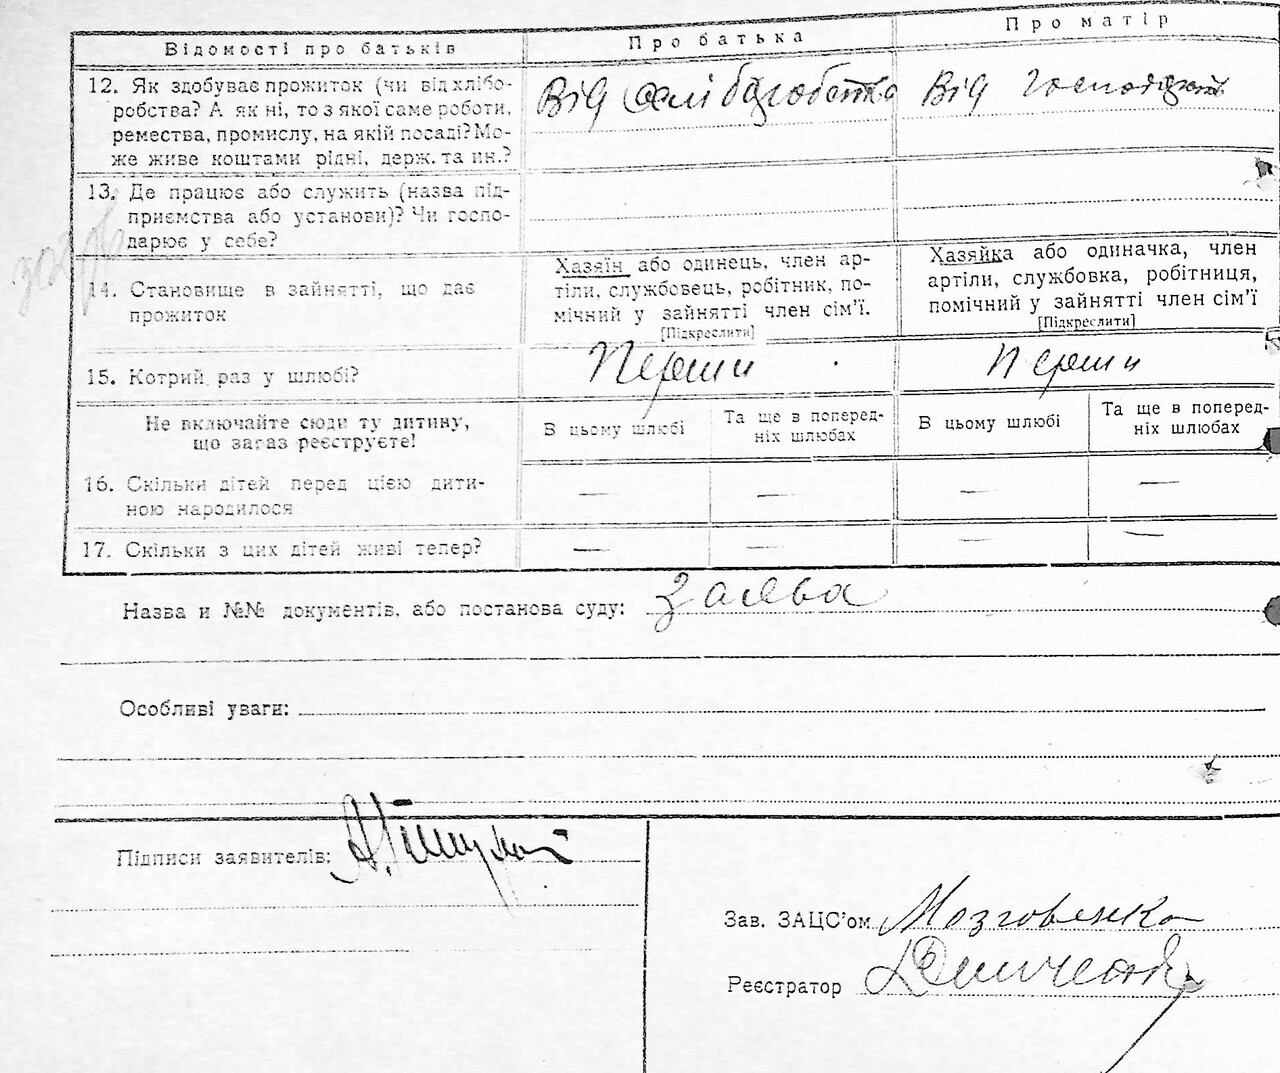 Відомості про батьків
Про батька
Про матір
12. Як здобуває прожиток (чи від хлібо-
робства? А як ні, то з якої саме роботи,
ремества, промислу, на якій посаді? Мо-
же живе коштами рідні, держ. та ин.?
Від
Від
13. Де працює або служить (назва під-
приємства або установи)? Чи госпо-
дарює у себе?
14. Становище в зайнятті, що дає
прожиток
Хазяїн або одинець, член ар-
тіли, службовець, робітник, по-
мічний у зайнятті член сім'ї.
[Підкреслити]
Хазяйка або одиначка, член
артіли, службовка, робітниця,
помічний у зайнятті член сім'ї
[Підкреслити]
15. Котрий раз у шлюбі?
Перший
Перший
Не включайте сюди ту дитину,
що зараз реєструєте!
В цьому шлюбі
Та ще в поперед-
ніх шлюбах
В цьому шлюбі
Та ще в поперед-
ніх шлюбах
16. Скільки дітей перед цією дити-
ною народилося
— — — —
17. Скільки з цих дітей живі тепер?
— — — —
Назва и №№ документів, або постанова суду: Заява
Особливі уваги:
Підписи заявителів:
Зав. ЗАЦС'ом Мозговенко
Реєстратор